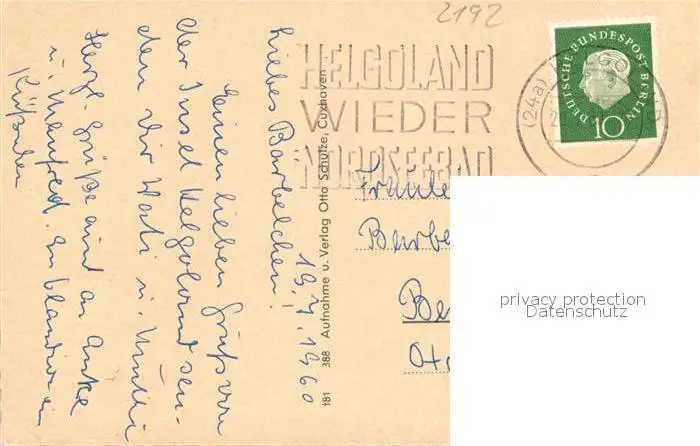 2192
HELGOLAND
WIEDER
NORDSEEBAD
(24a)
DEUTSCHE BUNDESPOST BERLIN
10
19.7.1960
Liebes Barbelchen!
Einen lieben Gruß von
der Insel Helgoland sen-
den Dir Vati u. Mutti
Herzl. Grüße auch an Anke
u. Manfred.
181 388 Aufnahme u. Verlag Otto Schulze, Cuxhaven
Fräule
Barbe
Be
Ot
privacy protection
Datenschutz